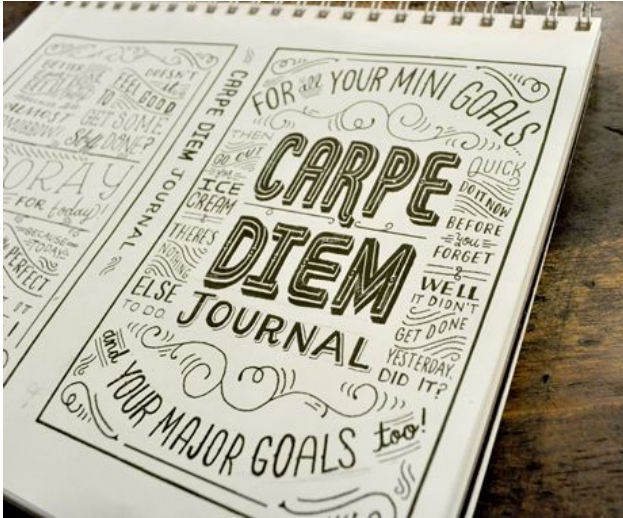 BETTER
DOESN'T
it
FEEL GOOD
TO
GET SOME
ALMOST
TOMORROW!
Stuff DONE?
ORAY
FOR today!
BECAUSE
TODAY
PERFECT
IT
CARPE DIEM JOURNAL
FOR all YOUR MINI GOALS...
THEN
GO OUT
for
ICE
CREAM
THERE'S
NOTHING
ELSE
TO DO.
CARPE
DIEM
JOURNAL
QUICK
DO IT NOW
BEFORE
you
FORGET
WELL
IT DIDN'T
GET DONE
YESTERDAY.
DID IT?
and YOUR MAJOR GOALS too!